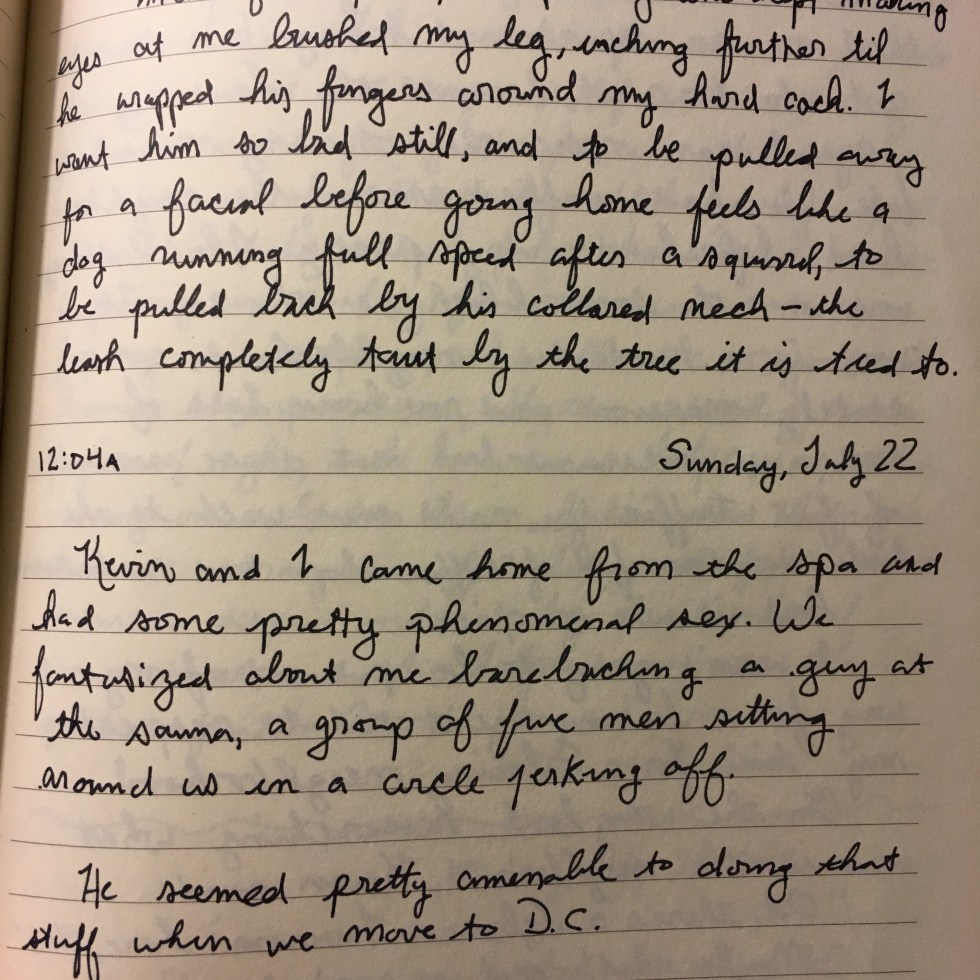 making
eyes at me brushed my leg, inching further til
he wrapped his fingers around my hard cock. I
want him so bad still, and to be pulled away
for a facial before going home feels like a
dog running full speed after a squirrel, to
be pulled back by his collared neck – the
leash completely taut by the tree it is tied to.
12:04A Sunday, July 22
Kevin and I came home from the spa and
had some pretty phenomenal sex. We
fantasized about me barebacking a guy at
the sauna, a group of five men sitting
around us in a circle jerking off.
He seemed pretty amenable to doing that
stuff when we move to D.C.